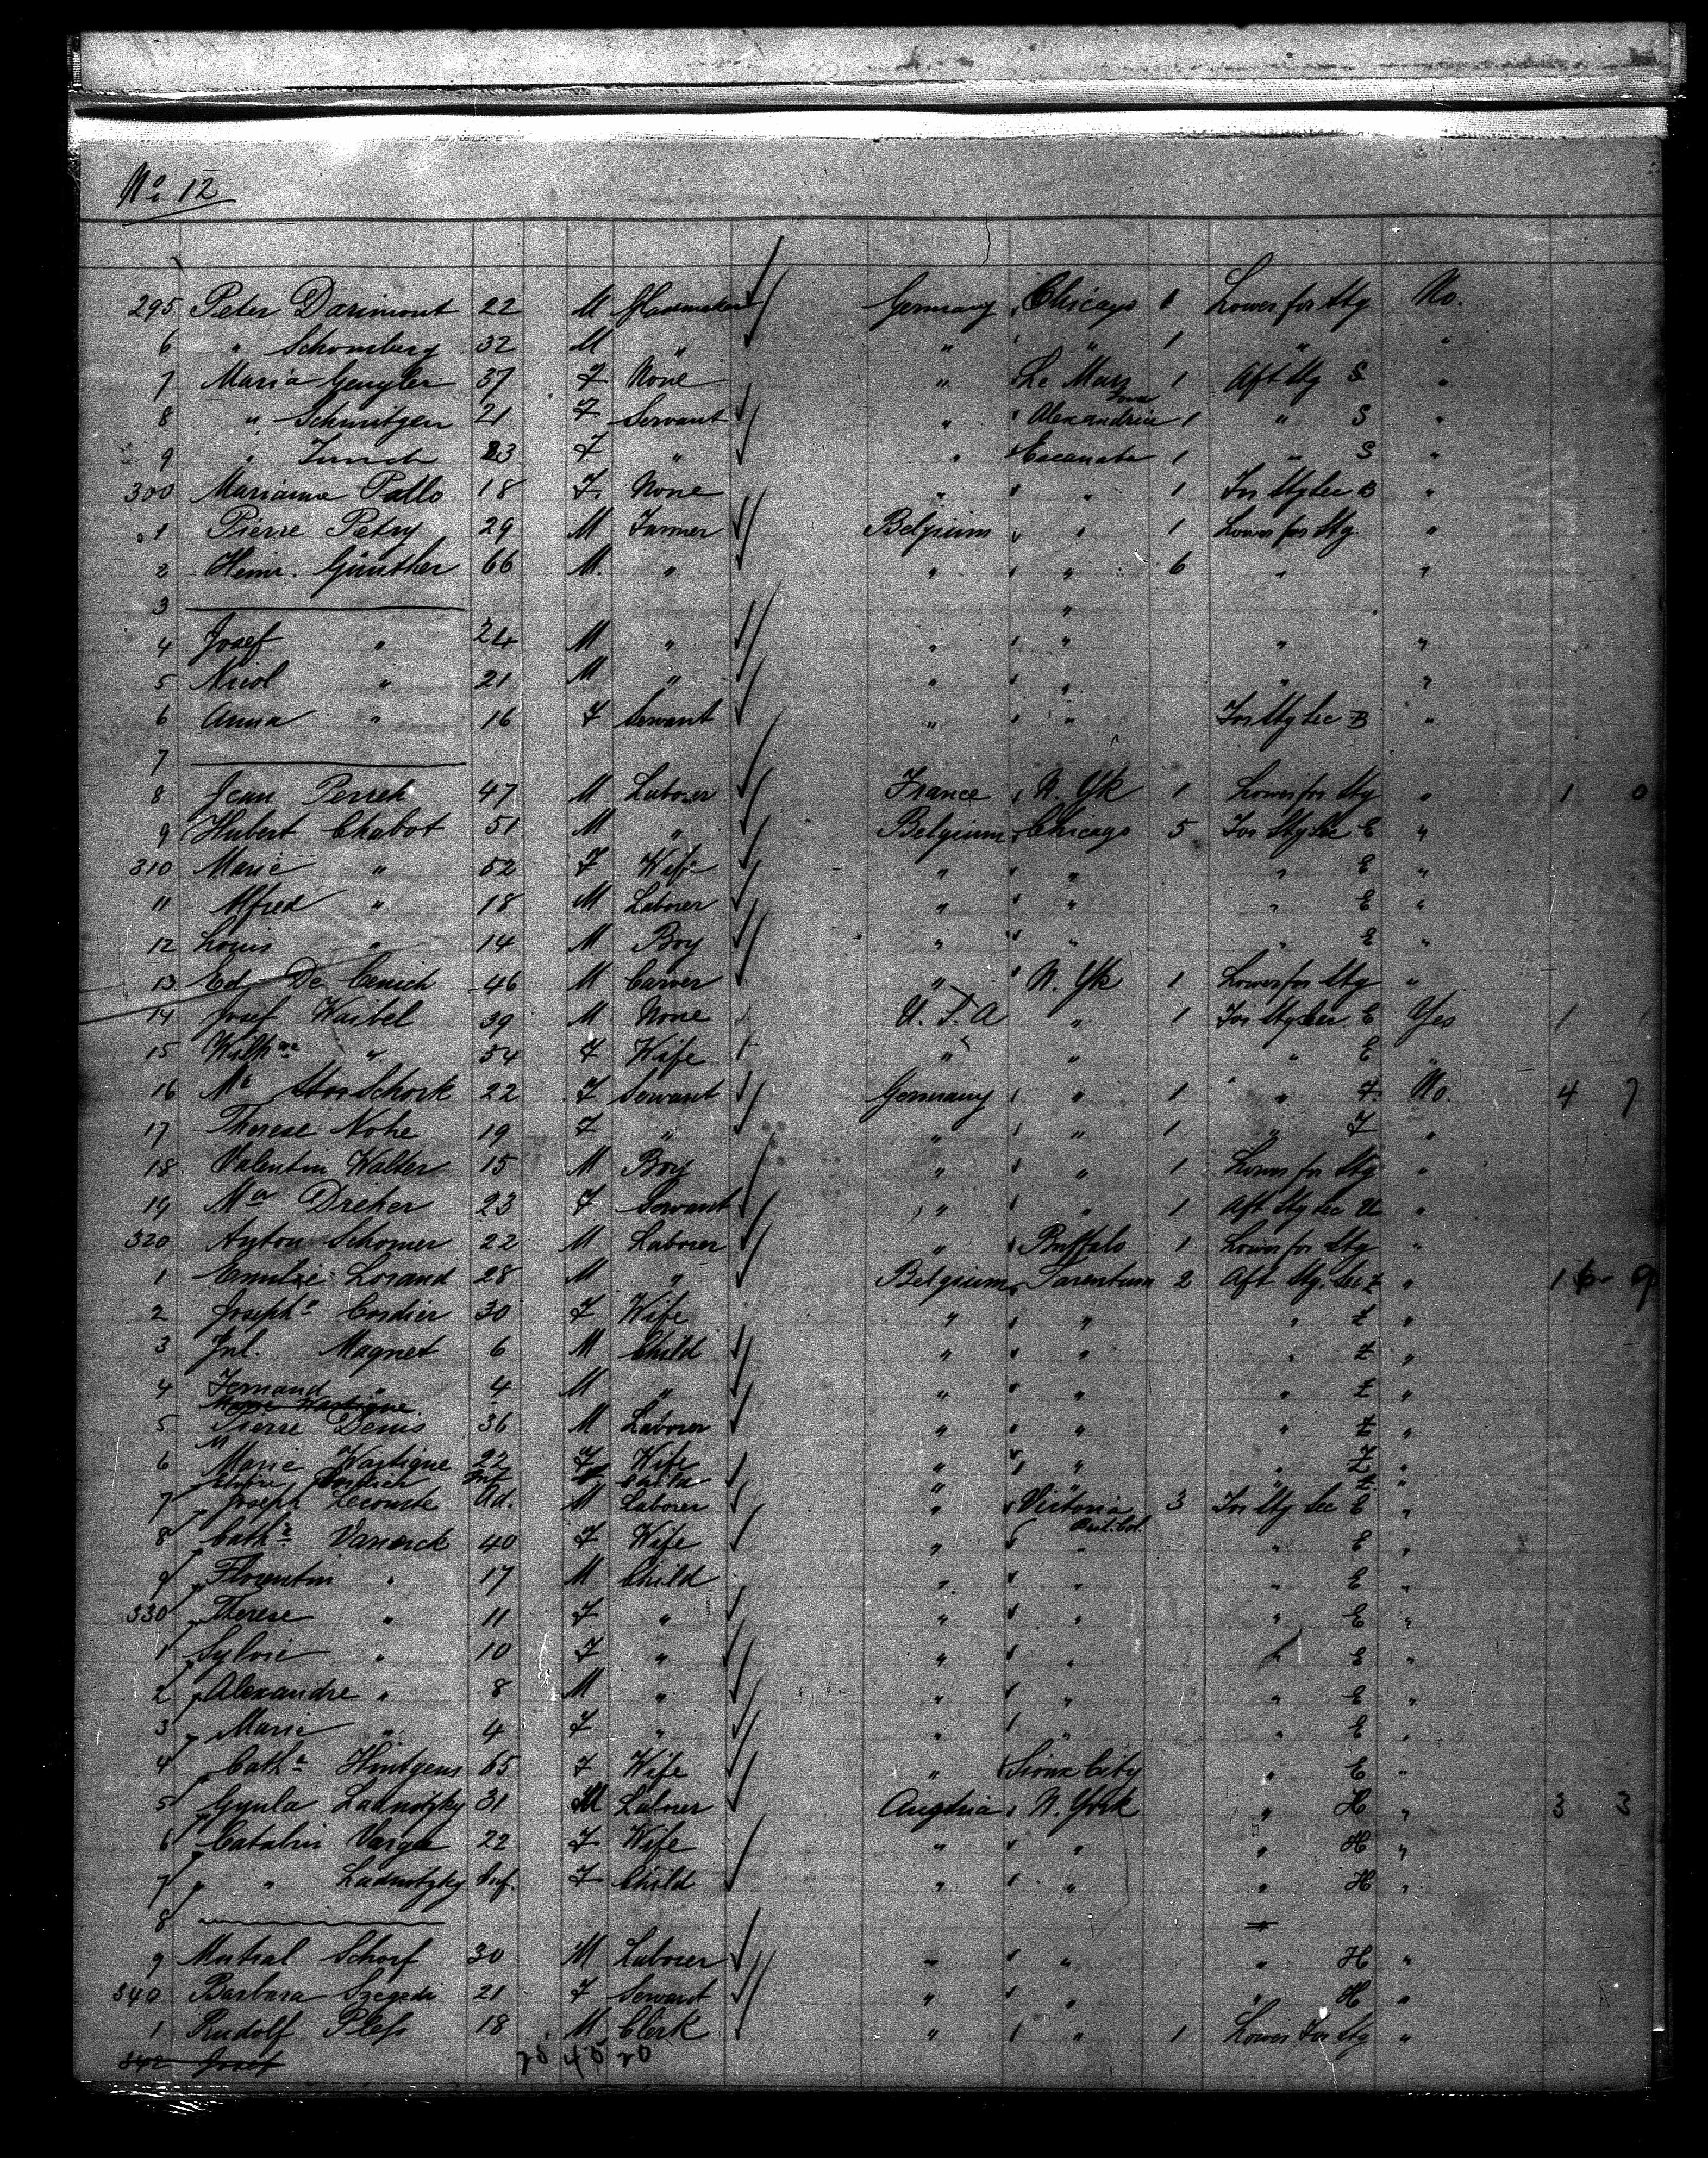 No. 12
295 Peter Darimont 22 M Germany Chicago 1 Lower for Stg No.
6 " Schomberg 32 M " " " 1 " "
7 Maria Gengler 37 F None " Le Mars Iowa 1 Aft Stg S "
8 " Schmitgen 21 F Servant " Alexandria 1 " S "
9 " 23 F " " Escanaba 1 " S "
300 Marianne Pallo 18 F None " " 1 For Stg Sec B "
1 Pierre Petry 29 M Farmer Belgium " 1 Lower for Stg. "
2 Heinr. Günther 66 M. " " " 6 " "
3 "
4 Josef " 24 M " " " " "
5 Nicol " 21 M " " " " "
6 Anna " 16 F Servant " " For Stg Sec B "
7
8 Jean Perreh 47 M Laborer France N. Yk 1 Lower for Stg " 1 0
9 Hubert Chabot 51 M " Belgium Chicago 5 For Stg Sec E "
310 Marie " 52 F Wife " " " E "
11 Alfred " 18 M Laborer " " " E "
12 Louis " 14 M Boy " " " E "
13 Ed De 46 M Carver " N. Yk 1 Lower for Stg "
14 Josef Waibel 39 M None U. S. A " 1 For Stg Sec E Yes 1
15 " 54 F Wife " " " E "
16 Schork 22 F Servant Germany " 1 " F. No. 4 7
17 Therese Nohe 19 F " " " 1 " F "
18. Valentin Walter 15 M Boy " " 1 Lower for Stg "
19 Ma Dreher 23 F Servant " " 1 Aft Stg Sec U "
320 Anton Schomer 22 M Laborer " Buffalo 1 Lower for Stg "
1 Emilie Lorand 28 M " Belgium Tarentum 2 Aft Stg. Sec Z "
2 Josepha Cordier 30 F Wife " " " Z "
3 Jul. Magnet 6 M Child " " " Z "
4 Fernand " 4 M " " " " Z "
Marie Wastique
5 Pierre Denis 36 M Laborer " " " Z "
6 Marie Wastique 22 F Wife " " " Z "
Inf Child " " Z "
7 Joseph Lecomte Ad. M Laborer " Victoria 3 For Stg Sec E "
8 Catha Vanerck 40 F Wife " " " E "
9 Florentin " 17 M Child " " " E "
330 Therese " 11 F " " " " E "
1 Sylvie " 10 F " " " " E "
2 Alexandre " 8 M " " " " E "
3 Marie " 4 F " " " " E "
4 Catha Hintgens 65 F Wife " Sioux City " E "
5 Gyula Ladnotzky 31 M Laborer Austria N. York " H " 3 3
6 Catalin Varga 22 F Wife " " " H "
7 " Ladnotzky Inf. F Child " " " H "
8
9 Schorf 30 M Laborer " " " H "
340 Barbara Szegedi 21 F Servant " " " H "
1 Rudolf Pless 18 M Clerk " " 1 Lower For Stg "
342 Josef